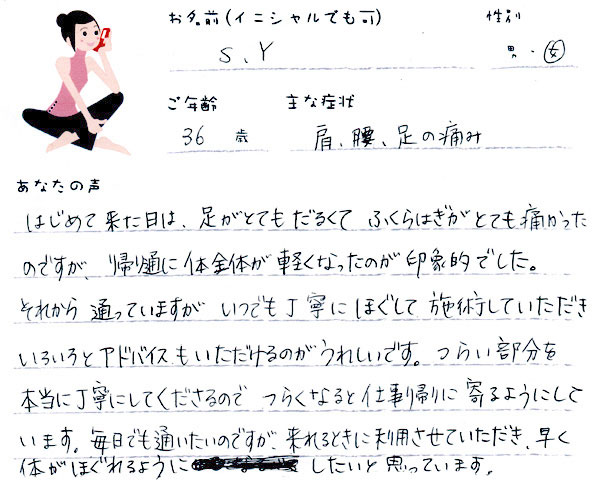 お名前(イニシャルでも可) 性別
S、Y 男・女
ご年齢 主な症状
36 歳 肩、腰、足の痛み
あなたの声
はじめて来た日は、足がとてもだるくて ふくらはぎがとても痛かった
のですが、帰り道に体全体が軽くなったのが印象的でした。
それから 通っていますが いつでも丁寧にほぐして施術していただき
いろいろとアドバイスもいただけるのがうれしいです。つらい部分を
本当に丁寧にしてくださるので つらくなると仕事帰りに寄るようにして
います。毎日でも通いたいのですが、来れるときに利用させていただき、早く
体がほぐれるように したいと思っています。